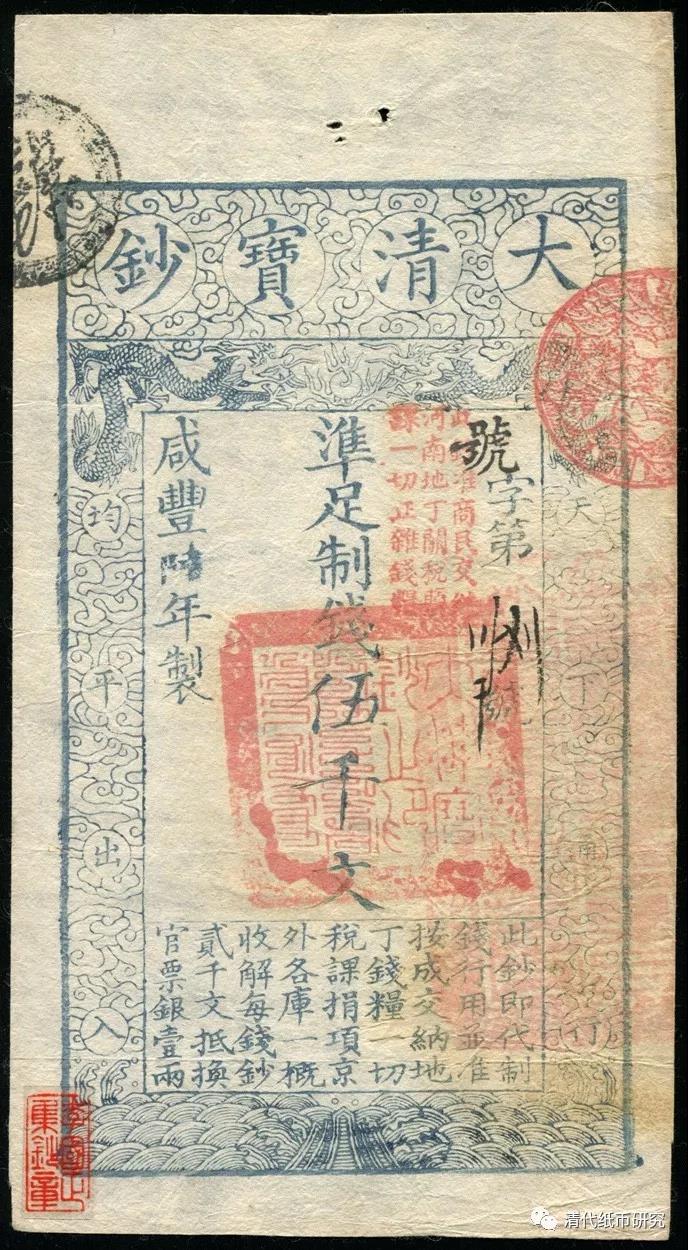 大清寶鈔
天下行
號字第號
此鈔准商民交納
河南地丁關稅鹽
課一切正雜錢糧
準足制錢伍千文
咸豐陸年製
均平出入
此鈔即代制
錢行用並准
按成交納地
丁錢糧一切
稅課捐項京
外各庫一概
收解每錢鈔
貳千文抵換
官票銀壹兩
清代纸币研究